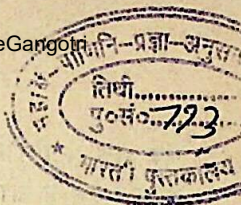 eGangotri
पाणिनि-प्रज्ञा-अनुस
तिथी..............
पु०सं०.793
* भारती पुस्तकालय